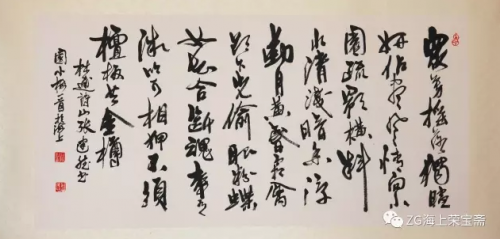 眾芳搖落獨暄
妍佔盡風情向小
園疏影横斜
水清淺暗香浮
動月黃昏霜禽
欲下先偷眼粉蝶
如知合斷魂幸有
微吟可相狎不須
檀板共金樽
林逋詩山張建
園小梅一首於滬上
ZG海上荣宝斋